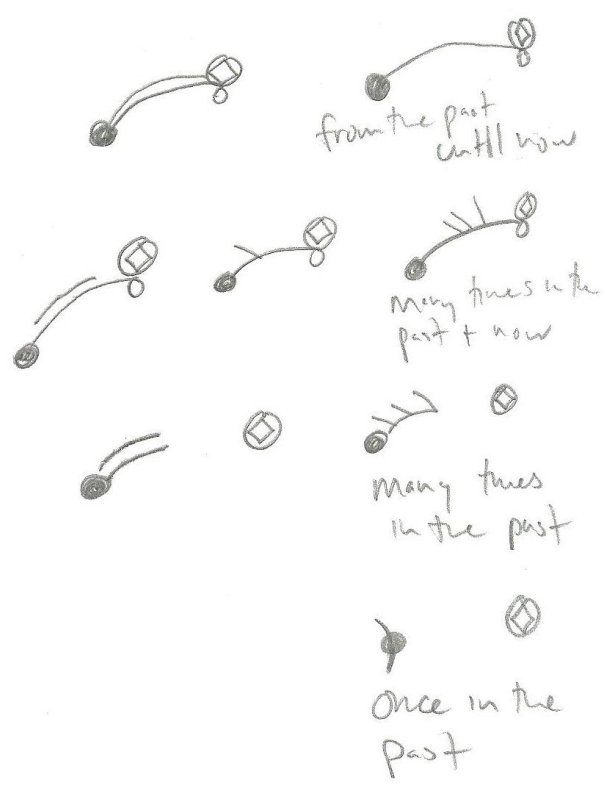 from the past
until now
Many times in the
past + now
Many times
in the past
Once in the
past